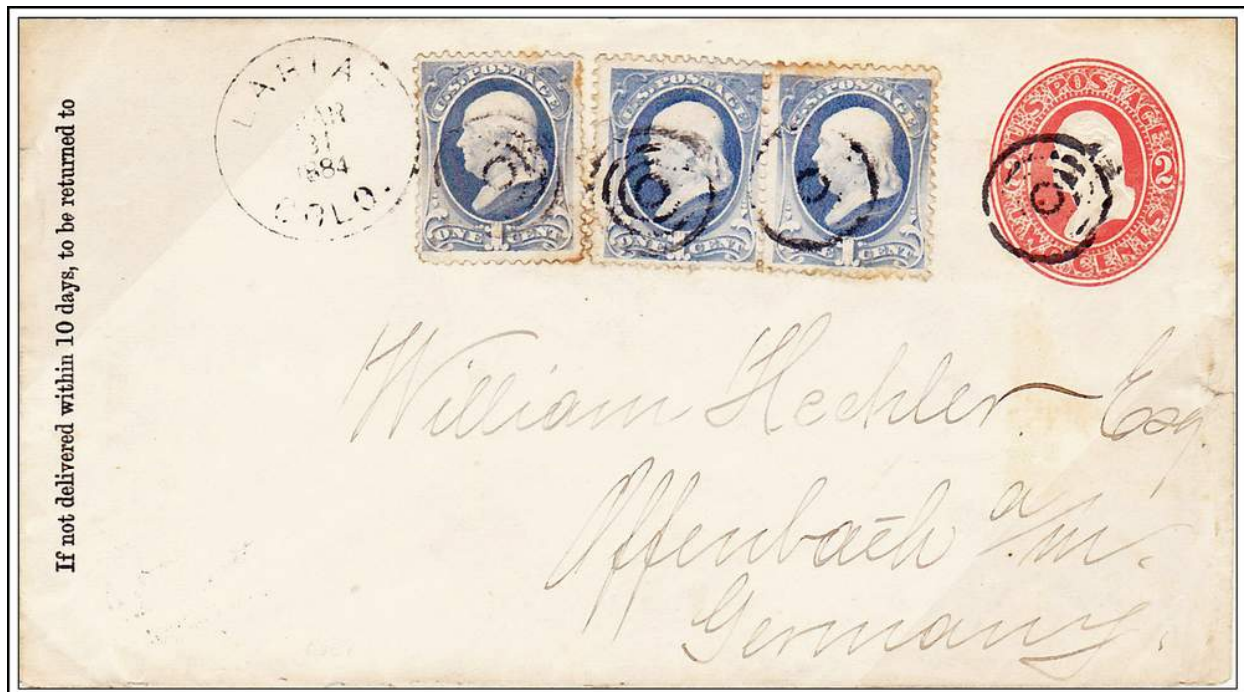 If not delivered within 10 days, to be returned to
LARIAT
MAR
31
1884
COLO.
U.S. POSTAGE
ONE 1 CENT
U.S. POSTAGE
ONE 1 CENT
U.S. POSTAGE
ONE 1 CENT
U.S. POSTAGE
2 2
TWO CENTS
William Hechler Esq.
Offenbach a/m.
Germany.